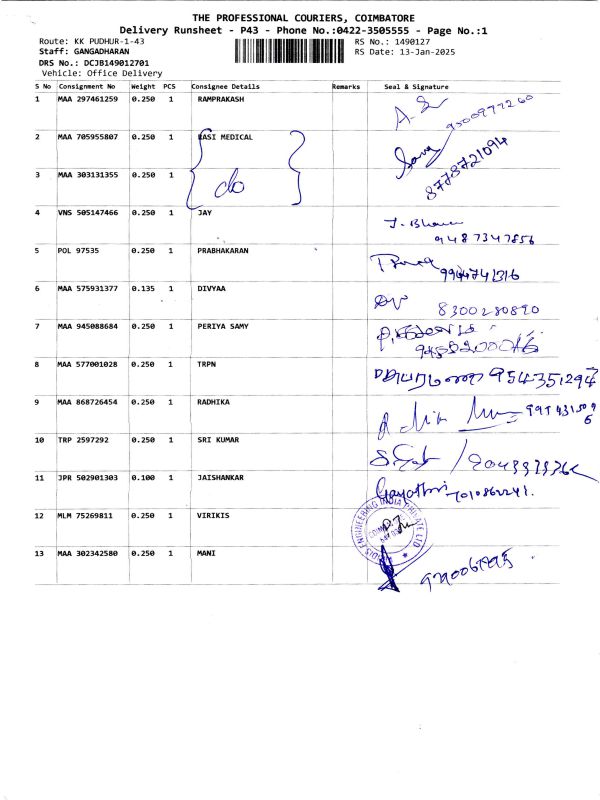 THE PROFESSIONAL COURIERS, COIMBATORE
Delivery Runsheet - P43 - Phone No.:0422-3505555 - Page No.:1
Route: KK PUDHUR-1-43 RS No.: 1490127
Staff: GANGADHARAN RS Date: 13-Jan-2025
DRS No.: DCJB149012701
Vehicle: Office Delivery
S No Consignment No Weight PCS Consignee Details Remarks Seal & Signature
1 MAA 297461259 0.250 1 RAMPRAKASH 9500977260
2 MAA 705955807 0.250 1 KASI MEDICAL
3 MAA 303131355 0.250 1 8778721094
4 VNS 505147466 0.250 1 JAY
9487347856
5 POL 97535 0.250 1 PRABHAKARAN
9944741316
6 MAA 575931377 0.135 1 DIVYAA
8300280890
7 MAA 945088684 0.250 1 PERIYA SAMY
8 MAA 577001028 0.250 1 TRPN
9 MAA 868726454 0.250 1 RADHIKA
10 TRP 2597292 0.250 1 SRI KUMAR
11 JPR 502901303 0.100 1 JAISHANKAR
Gayathri 7010862241.
12 MLM 75269811 0.250 1 VIRIKIS
13 MAA 302342580 0.250 1 MANI